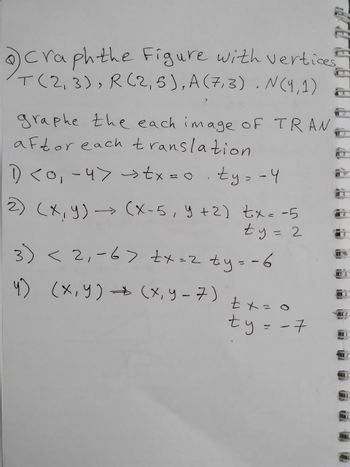 Q) Craph the Figure with vertices
T(2,3), R(2,5), A(7,3) . N(4,1)
graphe the each image of TRAN
aftor each translation
1) <0, -4> → tx = 0 . ty = -4
2) (x, y) → (x-5, y+2) tx = -5
ty = 2
3) < 2, -6> tx = 2 ty = -6
4) (x, y) → (x, y - 7)
tx = 0
ty = -7